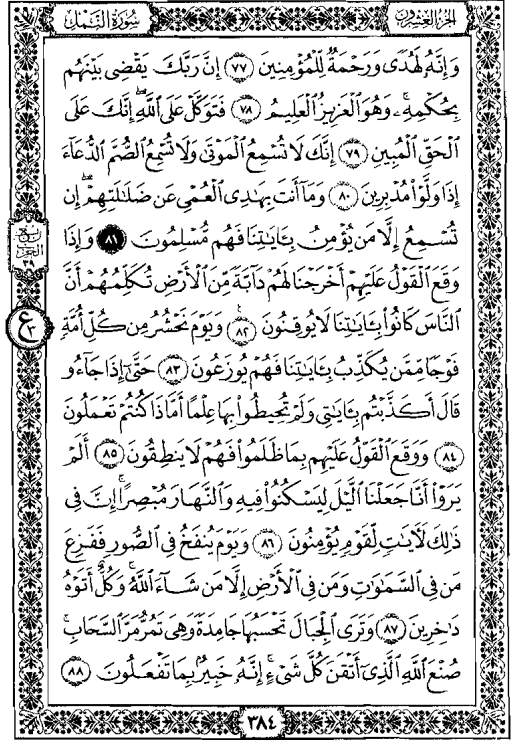 الجزء العشرون
سُورَةُ النَّمْلِ
وَإِنَّهُۥ لَهُدًى وَرَحْمَةٌ لِّلْمُؤْمِنِينَ ٧٧ إِنَّ رَبَّكَ يَقْضِى بَيْنَهُم
بِحُكْمِهِۦ ۚ وَهُوَ ٱلْعَزِيزُ ٱلْعَلِيمُ ٧٨ فَتَوَكَّلْ عَلَى ٱللَّهِ ۖ إِنَّكَ عَلَى
ٱلْحَقِّ ٱلْمُبِينِ ٧٩ إِنَّكَ لَا تُسْمِعُ ٱلْمَوْتَىٰ وَلَا تُسْمِعُ ٱلصُّمَّ ٱلدُّعَآءَ
إِذَا وَلَّوْا۟ مُدْبِرِينَ ٨٠ وَمَآ أَنتَ بِهَـٰدِى ٱلْعُمْىِ عَن ضَلَـٰلَتِهِمْ ۖ إِن
تُسْمِعُ إِلَّا مَن يُؤْمِنُ بِـَٔايَـٰتِنَا فَهُم مُّسْلِمُونَ ٨١ وَإِذَا
وَقَعَ ٱلْقَوْلُ عَلَيْهِمْ أَخْرَجْنَا لَهُمْ دَآبَّةً مِّنَ ٱلْأَرْضِ تُكَلِّمُهُمْ أَنَّ
ٱلنَّاسَ كَانُوا۟ بِـَٔايَـٰتِنَا لَا يُوقِنُونَ ٨٢ وَيَوْمَ نَحْشُرُ مِن كُلِّ أُمَّةٍ
فَوْجًا مِّمَّن يُكَذِّبُ بِـَٔايَـٰتِنَا فَهُمْ يُوزَعُونَ ٨٣ حَتَّىٰٓ إِذَا جَآءُو
قَالَ أَكَذَّبْتُم بِـَٔايَـٰتِى وَلَمْ تُحِيطُوا۟ بِهَا عِلْمًا أَمَّاذَا كُنتُمْ تَعْمَلُونَ
٨٤ وَوَقَعَ ٱلْقَوْلُ عَلَيْهِم بِمَا ظَلَمُوا۟ فَهُمْ لَا يَنطِقُونَ ٨٥ أَلَمْ
يَرَوْا۟ أَنَّا جَعَلْنَا ٱلَّيْلَ لِيَسْكُنُوا۟ فِيهِ وَٱلنَّهَارَ مُبْصِرًا ۚ إِنَّ فِى
ذَٰلِكَ لَـَٔايَـٰتٍ لِّقَوْمٍ يُؤْمِنُونَ ٨٦ وَيَوْمَ يُنفَخُ فِى ٱلصُّورِ فَفَزِعَ
مَن فِى ٱلسَّمَـٰوَٰتِ وَمَن فِى ٱلْأَرْضِ إِلَّا مَن شَآءَ ٱللَّهُ ۚ وَكُلٌّ أَتَوْهُ
دَٰخِرِينَ ٨٧ وَتَرَى ٱلْجِبَالَ تَحْسَبُهَا جَامِدَةً وَهِىَ تَمُرُّ مَرَّ ٱلسَّحَابِ ۚ
صُنْعَ ٱللَّهِ ٱلَّذِىٓ أَتْقَنَ كُلَّ شَىْءٍ ۚ إِنَّهُۥ خَبِيرٌۢ بِمَا تَفْعَلُونَ ٨٨
ربع
الحزب
٣٩
ع ٣
٣٨٤